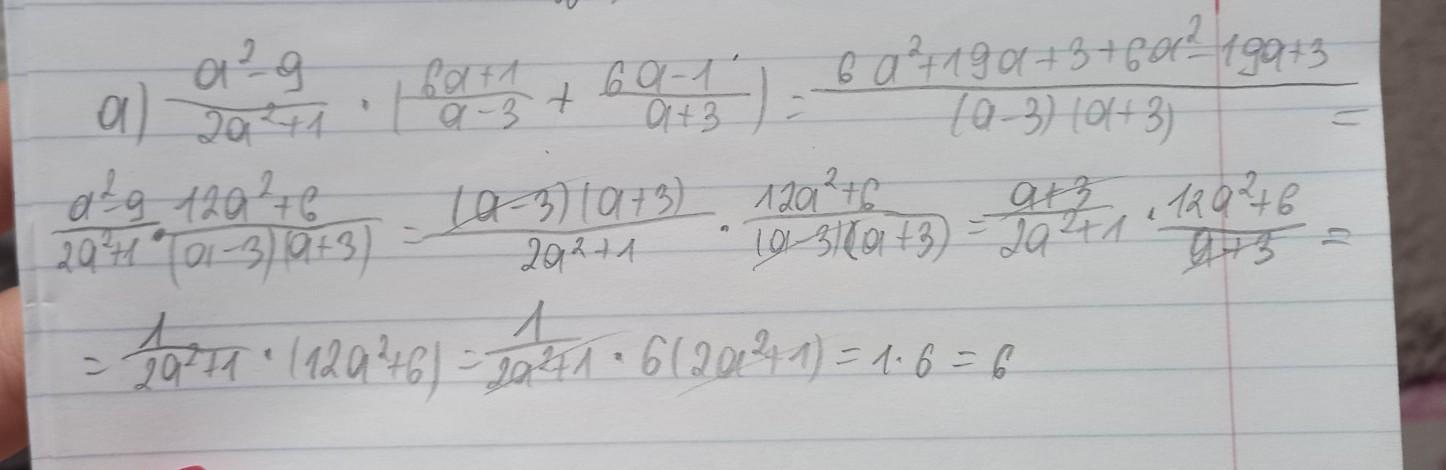 a) \frac{a^2-9}{2a^2+1} \cdot \left(\frac{6a+1}{a-3} + \frac{6a-1}{a+3}\right) = \frac{6a^2+19a+3+6a^2-19a+3}{(a-3)(a+3)} =
\frac{a^2-9}{2a^2+1} \cdot \frac{12a^2+6}{(a-3)(a+3)} = \frac{(a-3)(a+3)}{2a^2+1} \cdot \frac{12a^2+6}{(a-3)(a+3)} = \frac{a+3}{2a^2+1} \cdot \frac{12a^2+6}{a+3} =
= \frac{1}{2a^2+1} \cdot (12a^2+6) = \frac{1}{2a^2+1} \cdot 6(2a^2+1) = 1 \cdot 6 = 6